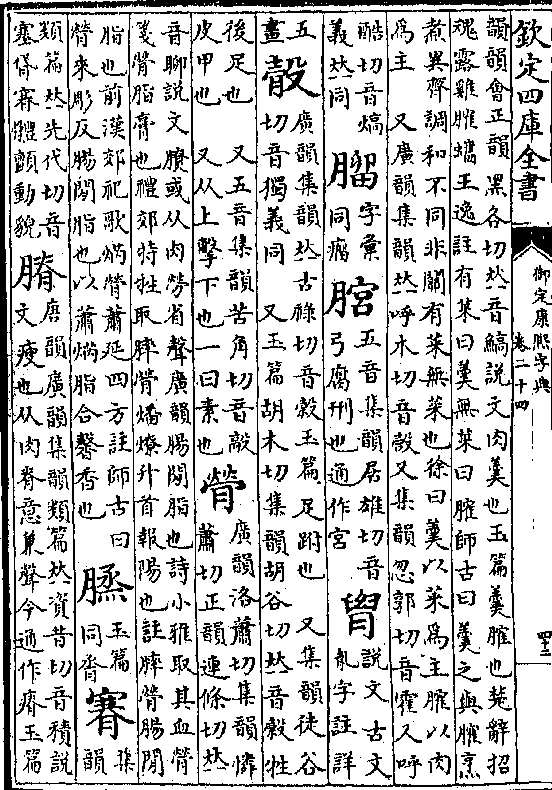 欽定四庫全書
御定康熙字典
卷二十四
四十三
韻韻會正韻黑各切𠀤音鰝說文肉羹也玉篇羹臛也楚辭招
魂露雞臛蠵王逸註有菜曰羹無菜曰臛師古曰羹之與臛烹
煮異齊調和不同非關有菜無菜也徐曰羹以菜為主臛以肉
為主 又廣韻集韻𠀤呼木切音㲄又集韻忽郭切音霍又呼
酷切音熇
義𠀤同
字彙
同瘤
五音集韻居雄切音
弓腐刑也通作宮
說文古文
字註詳
五
畫
廣韻集韻𠀤古祿切音穀玉篇足跗也 又集韻徒谷
切音獨義同 又玉篇胡木切集韻胡谷切𠀤音縠牲
後足也 又五音集韻苦角切音㱿
皮甲也 又从上擊下也一曰素也
膋
廣韻洛蕭切集韻憐
蕭切正韻連條切𠀤
音聊說文膫或从肉勞省聲廣韻腸閒脂也詩小雅取其血膋
箋膋脂膏也禮郊特牲取膟膋燔燎升首報陽也註膟膋腸閒
脂也前漢郊祀歌焫膋蕭延四方註師古曰
膋來彫反腸閒脂也以蕭焫脂合馨香也
玉篇
同脀
集
韻
類篇𠀤先代切音
塞體顫動貌
膌
唐韻廣韻集韻類篇𠀤資昔切音積說
文瘦也从肉脊意兼聲今通作瘠玉篇